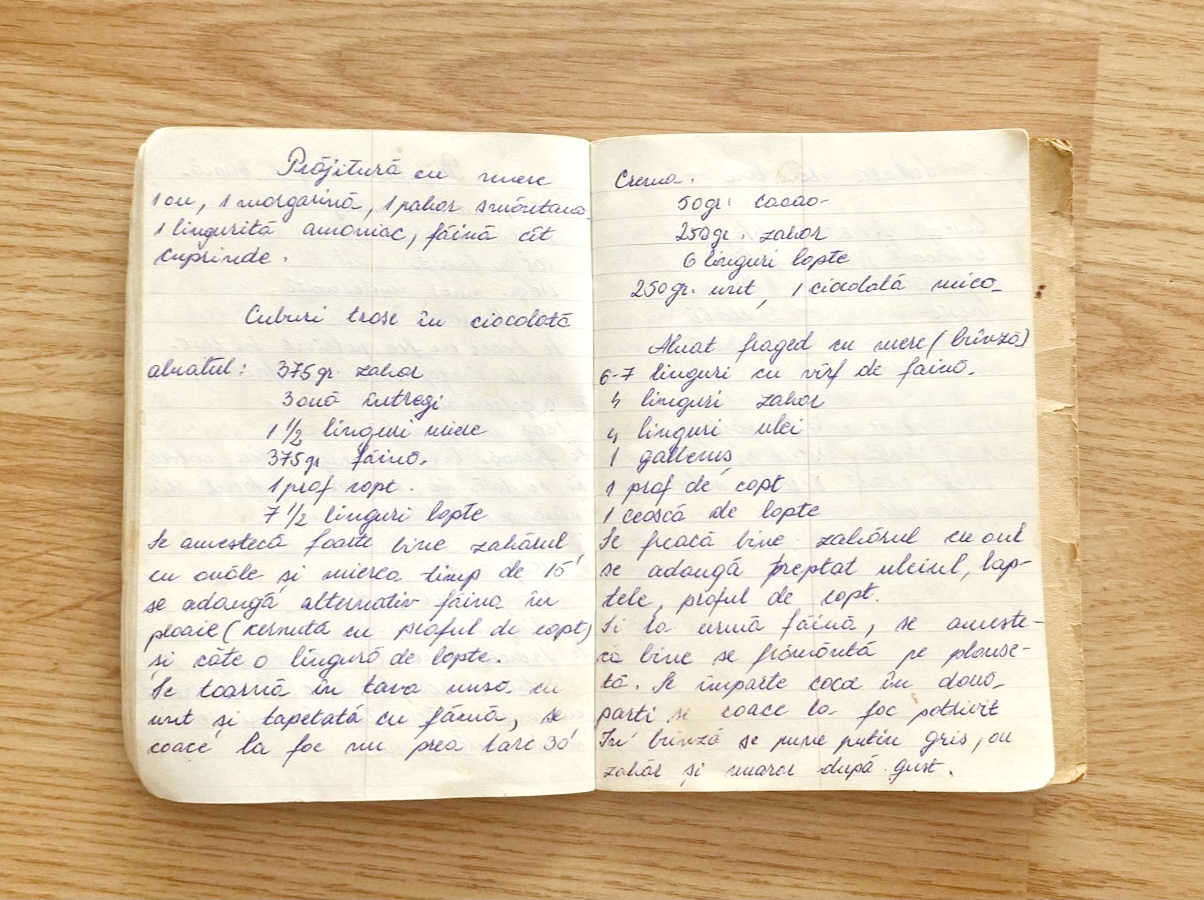 Prăjitură cu mere
1 ou, 1 margarină, 1 pahar smântână
1 linguriță amoniac, făină cît
cuprinde.
Cuburi trase în ciocolată
aluatul: 375 gr. zahar
3 ouă întregi
1 1/2 linguri miere
375 gr făină.
1 praf copt.
7 1/2 linguri lapte
Se amestecă foarte bine zahărul
cu ouăle și mierea timp de 15'
se adaugă alternativ făina în
ploaie (cernută cu praful de copt)
și câte o lingură de lapte.
Se toarnă în tava unsă cu
unt și tapetată cu făină, se
coace la foc nu prea tare 30'
Crema.
50 gr. cacao
250 gr. zahar
6 linguri lapte
250 gr. unt, 1 ciocolată mica
Aluat fraged cu mere (brînză)
6-7 linguri cu vîrf de făină.
4 linguri zahar
4 linguri ulei
1 galbenuș
1 praf de copt
1 ceașcă de lapte
Se freacă bine zahărul cu oul
se adaugă treptat uleiul, lap-
tele, praful de copt.
Și la urmă făină, se ameste-
ca bine se frămîntă pe planșe-
tă. Se imparte coca în două
parti se coace la foc potrivit
In brînză se pune putin gris, ou
zahăr și marar după gust.